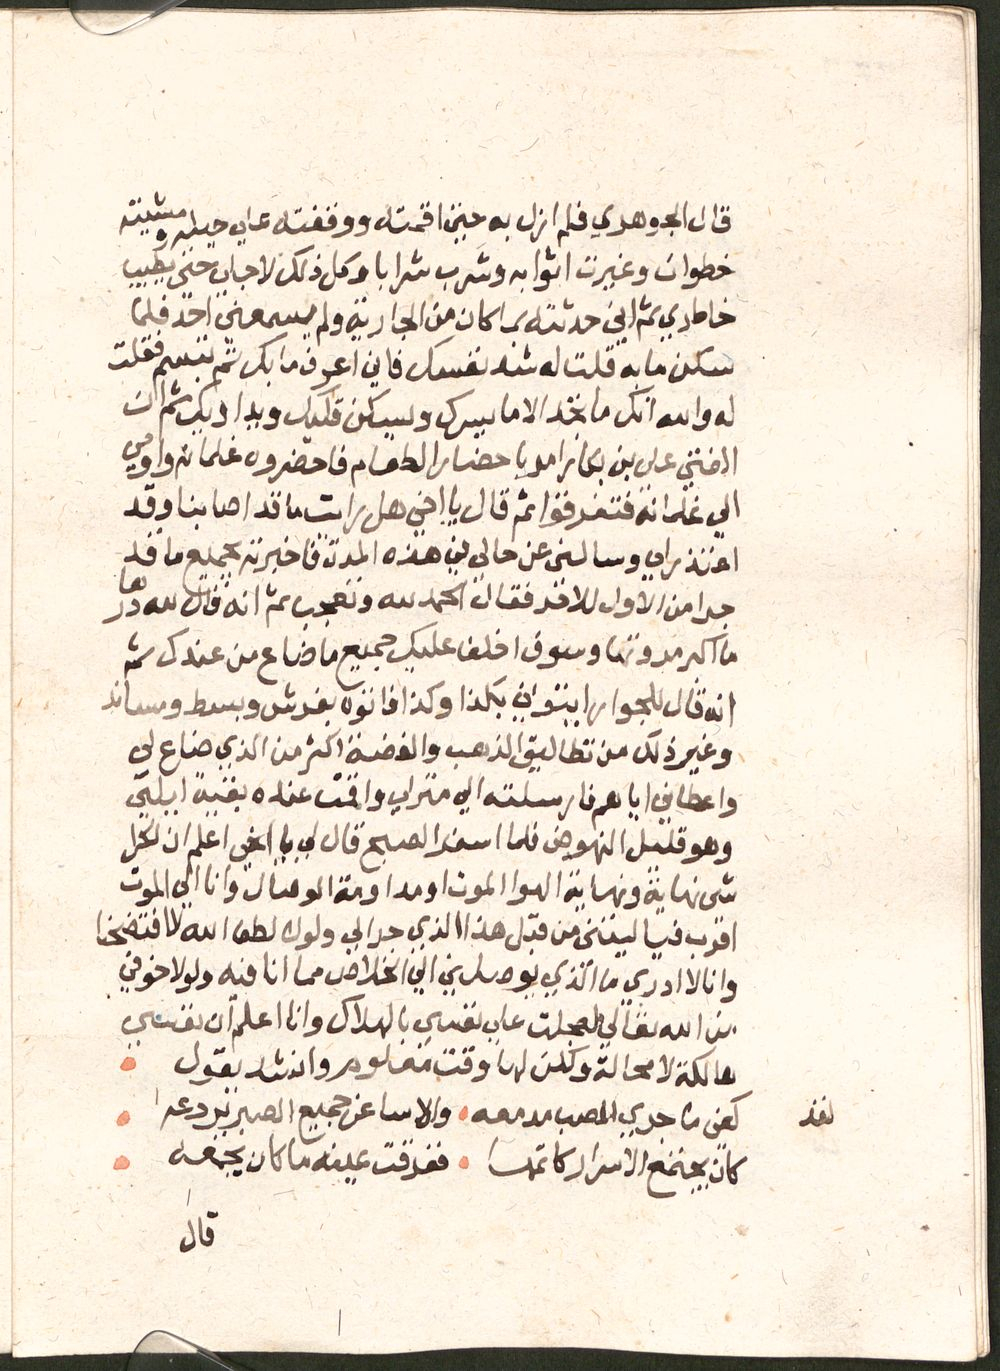 قال الجوهري فلم ازل به حتي اقمته ووقفته علي حيله ومشيته
خطوات وغيرت اثوابه وشرب شرابا وكل ذلك لاجلي حتي يطيب
خاطري ثم اني حدثته بما كان من الجارية ولم يسمعني احد فلما
سكن ما به قلت له شد نفسك فاني اعرف ما بك ثم تبسم فقلت
له والله انك ما تجد الا ما يسرك ويسكن قلبك ويداويك ثم ان
علي بن بكار امر باحضار الطعام فاحضروه غلمانه واومي
الي غلمانه فتفرقوا ثم قال يا اخي هل رايت ما قد اصابنا وقد
اعتذر الي وسالني عن حالي في هذه المدة فاخبرته بجميع ما قد
جرا من الاول للاخر فقال الحمد لله وتعجب ثم انه قال لله درها
ما اكبر مروتها وسوف اخلف عليك جميع ما ضاع من عندك ثم
انه قال للجوار ايتوني بكذا وكذا فاتوه بفرش وبسط ومساند
وغير ذلك من تعاليق الذهب والفضة اكثر من الذي ضاع لي
واعطاني اياهم فارسلته الي منزلي واقمت عنده بقية ليلتي
وهو قليل النهوض فلما اسفر الصبح قال لي يا اخي اعلم ان لكل
شي نهاية ونهاية الهوا الموت او مداومة الوصال وانا الي الموت
اقرب فيا ليتني من قبل هذا الذي جرا لي ولولا لطف الله لافتضحنا
وانا لا ادري ما الذي يوصلني الي الخلاص مما انا فيه ولولا خوفي
من الله تعالي لعجلت علي نفسي بالهلاك وانا اعلم ان نفسي
هالكة لا محالة ولكن لها وقت معلوم وانشد يقول
كفي ما جري للصب مدمعه • والاسا عن جميع الصبر يردعه
كان يجمع الاسرار كاتمها • ففرقت عينه ما كان يجمعه
قال